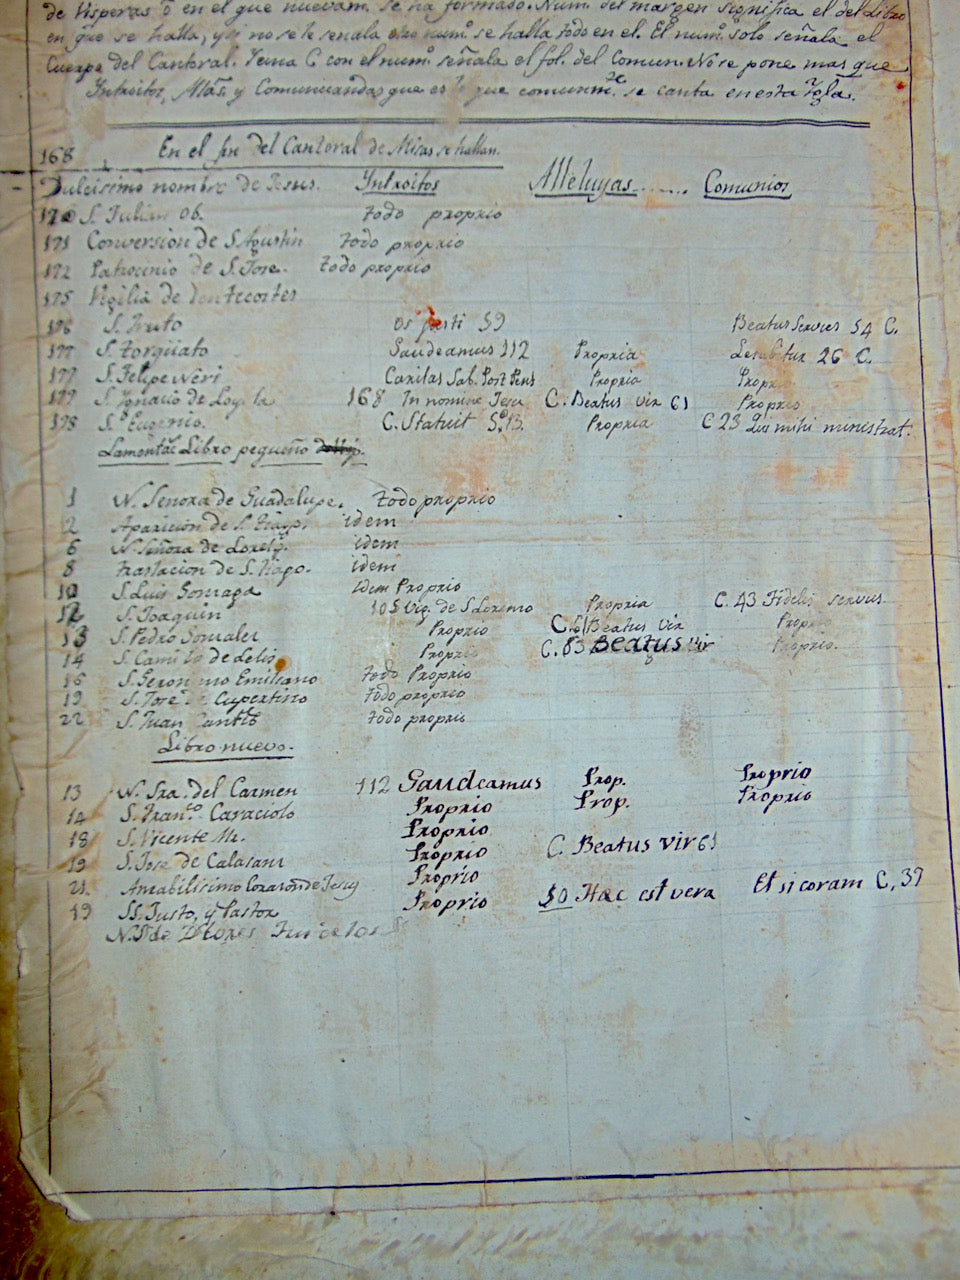 de Visperas ò en el que nuevam. se ha formado. Num. del margen significa el del Libro
en que se halla, y si no se le señala otro num.º se halla todo en el. El num.º solo señala el
Cuerpo del Cantoral. Yema C con el num.º señala el fol. del Comun. No se pone mas que
Introitos, Allas. y Comunicandas que es lo que comunmte. se canta en esta Ygla.
168 En el fin del Cantoral de Misas se hallan.
Dulcissimo nombre de Jesus. Yntroitos Alleluyas....... Comunios
170 S. Julian Ob. todo proprio
171 Conversion de S. Agustin todo proprio
172 Patrocinio de S. Jose. todo proprio
175 Vigilia de Pentecostes
176 S. Fruto Os justi 59 Beatus servus 54 C.
177 S. Torquato Gaudeamus 112 Propria Letabitur 26 C.
177 S. Felipe Neri Caritas Sab. Post Pens Propria Proprio
177 S. Ignacio de Loyola 168 In nomine Jesu C. Beatus vir 61 Proprio
178 S. Eugenio. C. Statuit S. 13. Propria C 23 Qui mihi ministrat.
Lamentac Libro pequeño
1 N. Senora de Guadalupe. todo proprio
2 Aparicion de S. Tiago. idem
6 N. Señora de Loreto. idem
8 traslacion de S. Tiago. idem
10 S. Luis Gonzaga idem Proprio
12 S. Joaquin 105 Vig. de S. Lorenzo Propria C. 43 Fidelis servus
13 S. Pedro Gonzalez Proprio C. 61 Beatus vir Proprio
14 S. Camilo de Lelis Proprio C. 63 Beatus vir Proprio.
16 S. Geronimo Emiliano todo Proprio
19 S. Jose de Cupertino todo proprio
22 S. Juan Cantio todo proprio
Libro nuevo.
13 N. Sra. del Carmen 112 Gaudeamus Prop. Proprio
14 S. Franco. Caraciolo Proprio Prop. Proprio
18 S. Vicente Mr. Proprio
19 S. Jose de Calasanz Proprio C. Beatus vir 61
21. Amabilisimo Corazon de Jesus Proprio
19 SS. Justo, y Pastor Proprio 50 Hæc est vera Et si coram C, 39
N. Sa. de Dolores